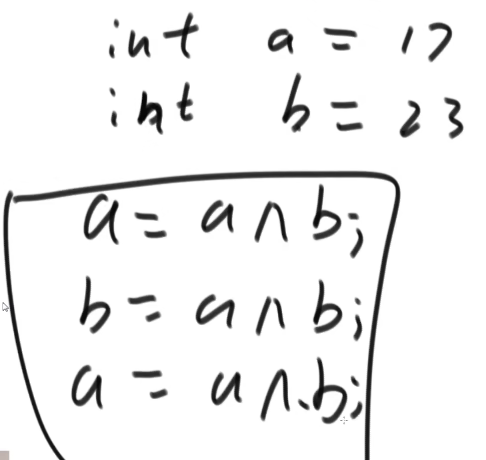 int a = 17
int b = 23
a = a ^ b;
b = a ^ b;
a = a ^ b;